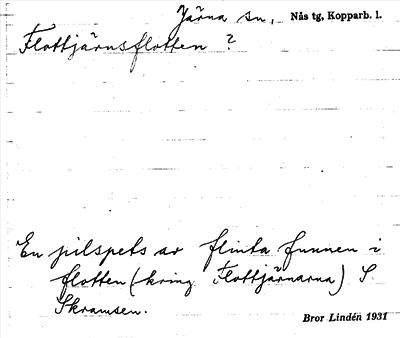 Järna sn, Nås tg, Kopparb. l.
Flottjärnsflotten ?
En pilspets av flinta funnen i
flotten (kring Flottjärnarna) S
Skramsen.
Bror Lindén 1931